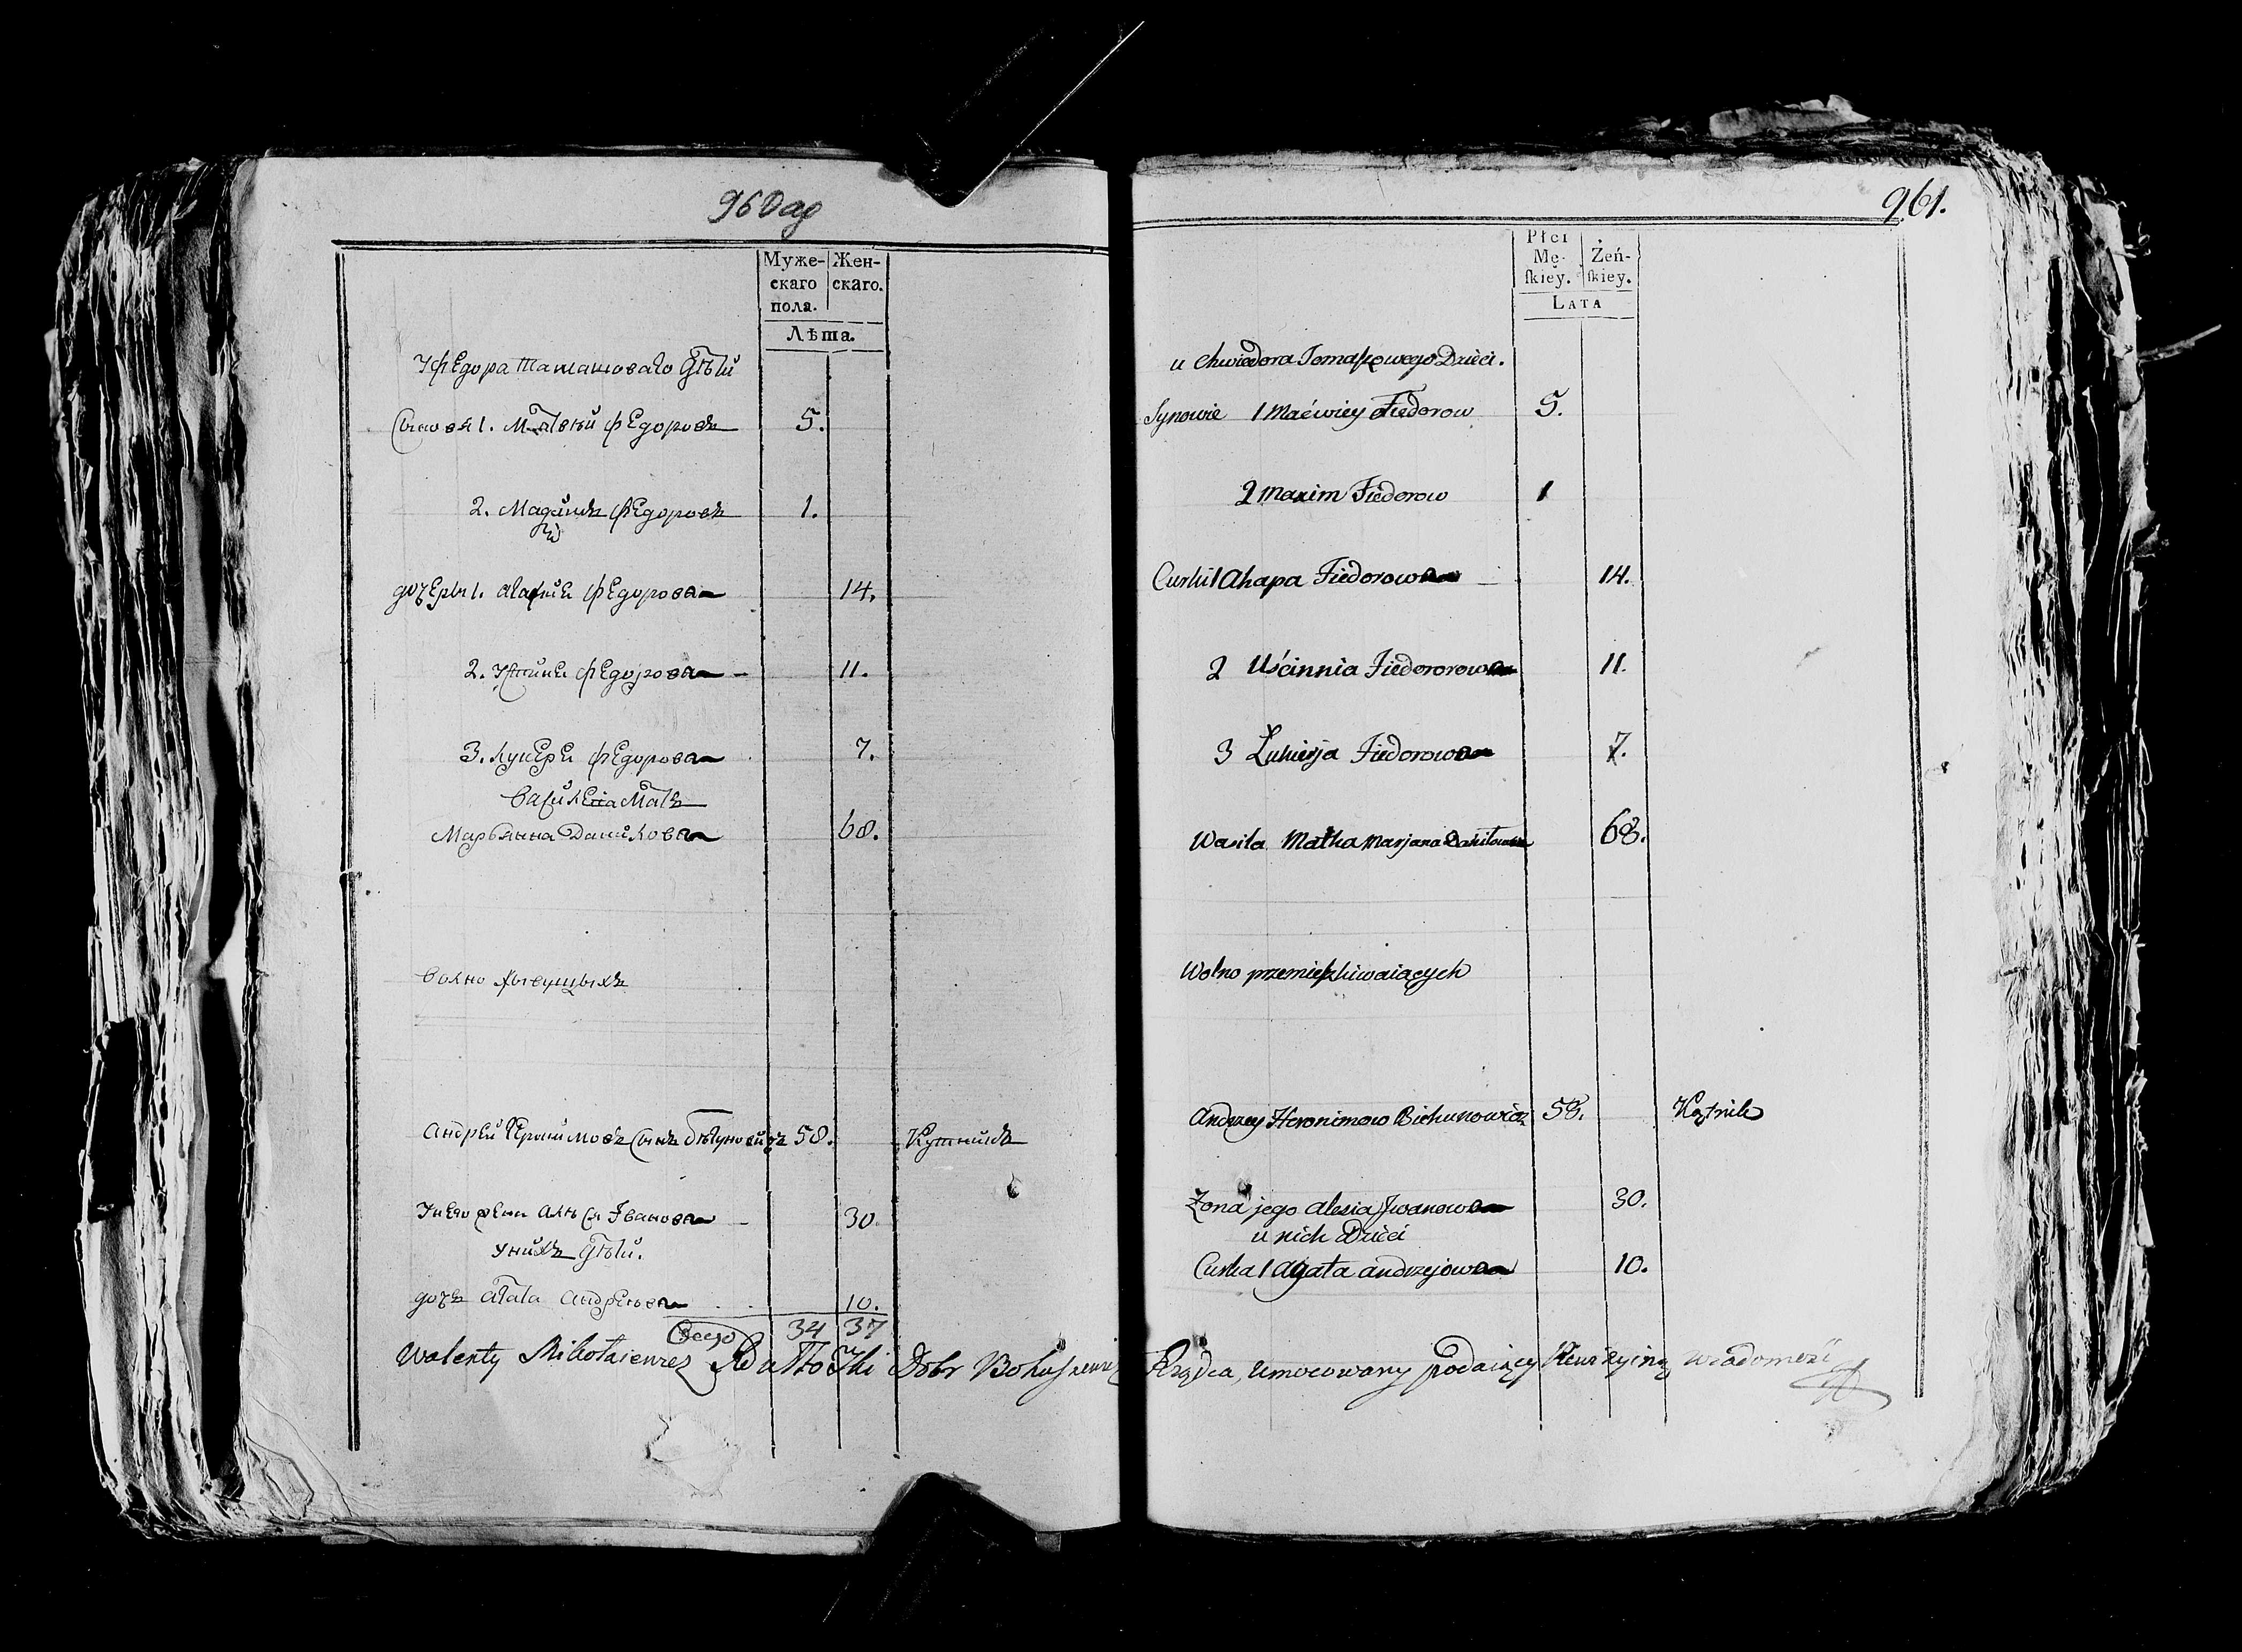 960 об
Муже- Жен-
скаго скаго.
пола.
Лѣта.
У Федора Тамашоваго дѣти
Сыновя 1. Матвѣй Федоровъ 5.
2. Федоровъ 1.
дочеры 1. Федорова 14.
2. Федорова 11.
3. Лукеря Федорова 7.
Мать
Марьянна Данилова 68.
Волно живущыхъ
Андрей Геронимовъ сынъ 58. Кутникъ
У него жена Алѣся Іванова 30
У нихъ дѣти.
дочь Агата Андреева 10.
Всего 34 37
961.
Płci
Mę- Żeń-
ſkiey. ſkiey.
LATA
u Chwiedora Tomaſzowego Dzieci.
Synowie 1 Maćwiey Fiedorow 5.
2 Maxim Fiedorow 1
Curki 1 Ahapa Fiedorowa 14.
2 Uścinnia Fiedororowa 11.
3 Łukierja Fiedorowa 7.
Wasila Matka Marjana Daniłowa 68.
Wolno przemieſzkiwaiących
Andrzey Heronimow Bichunowicz 58. Kątnik
Żona jego Alesia Jwanowa 30.
u nich Dzieci
Curka 1 Agata Andrzejowa 10.
Walenty Mikołaiewicz Dobr Rządca, Umocowany podaiący